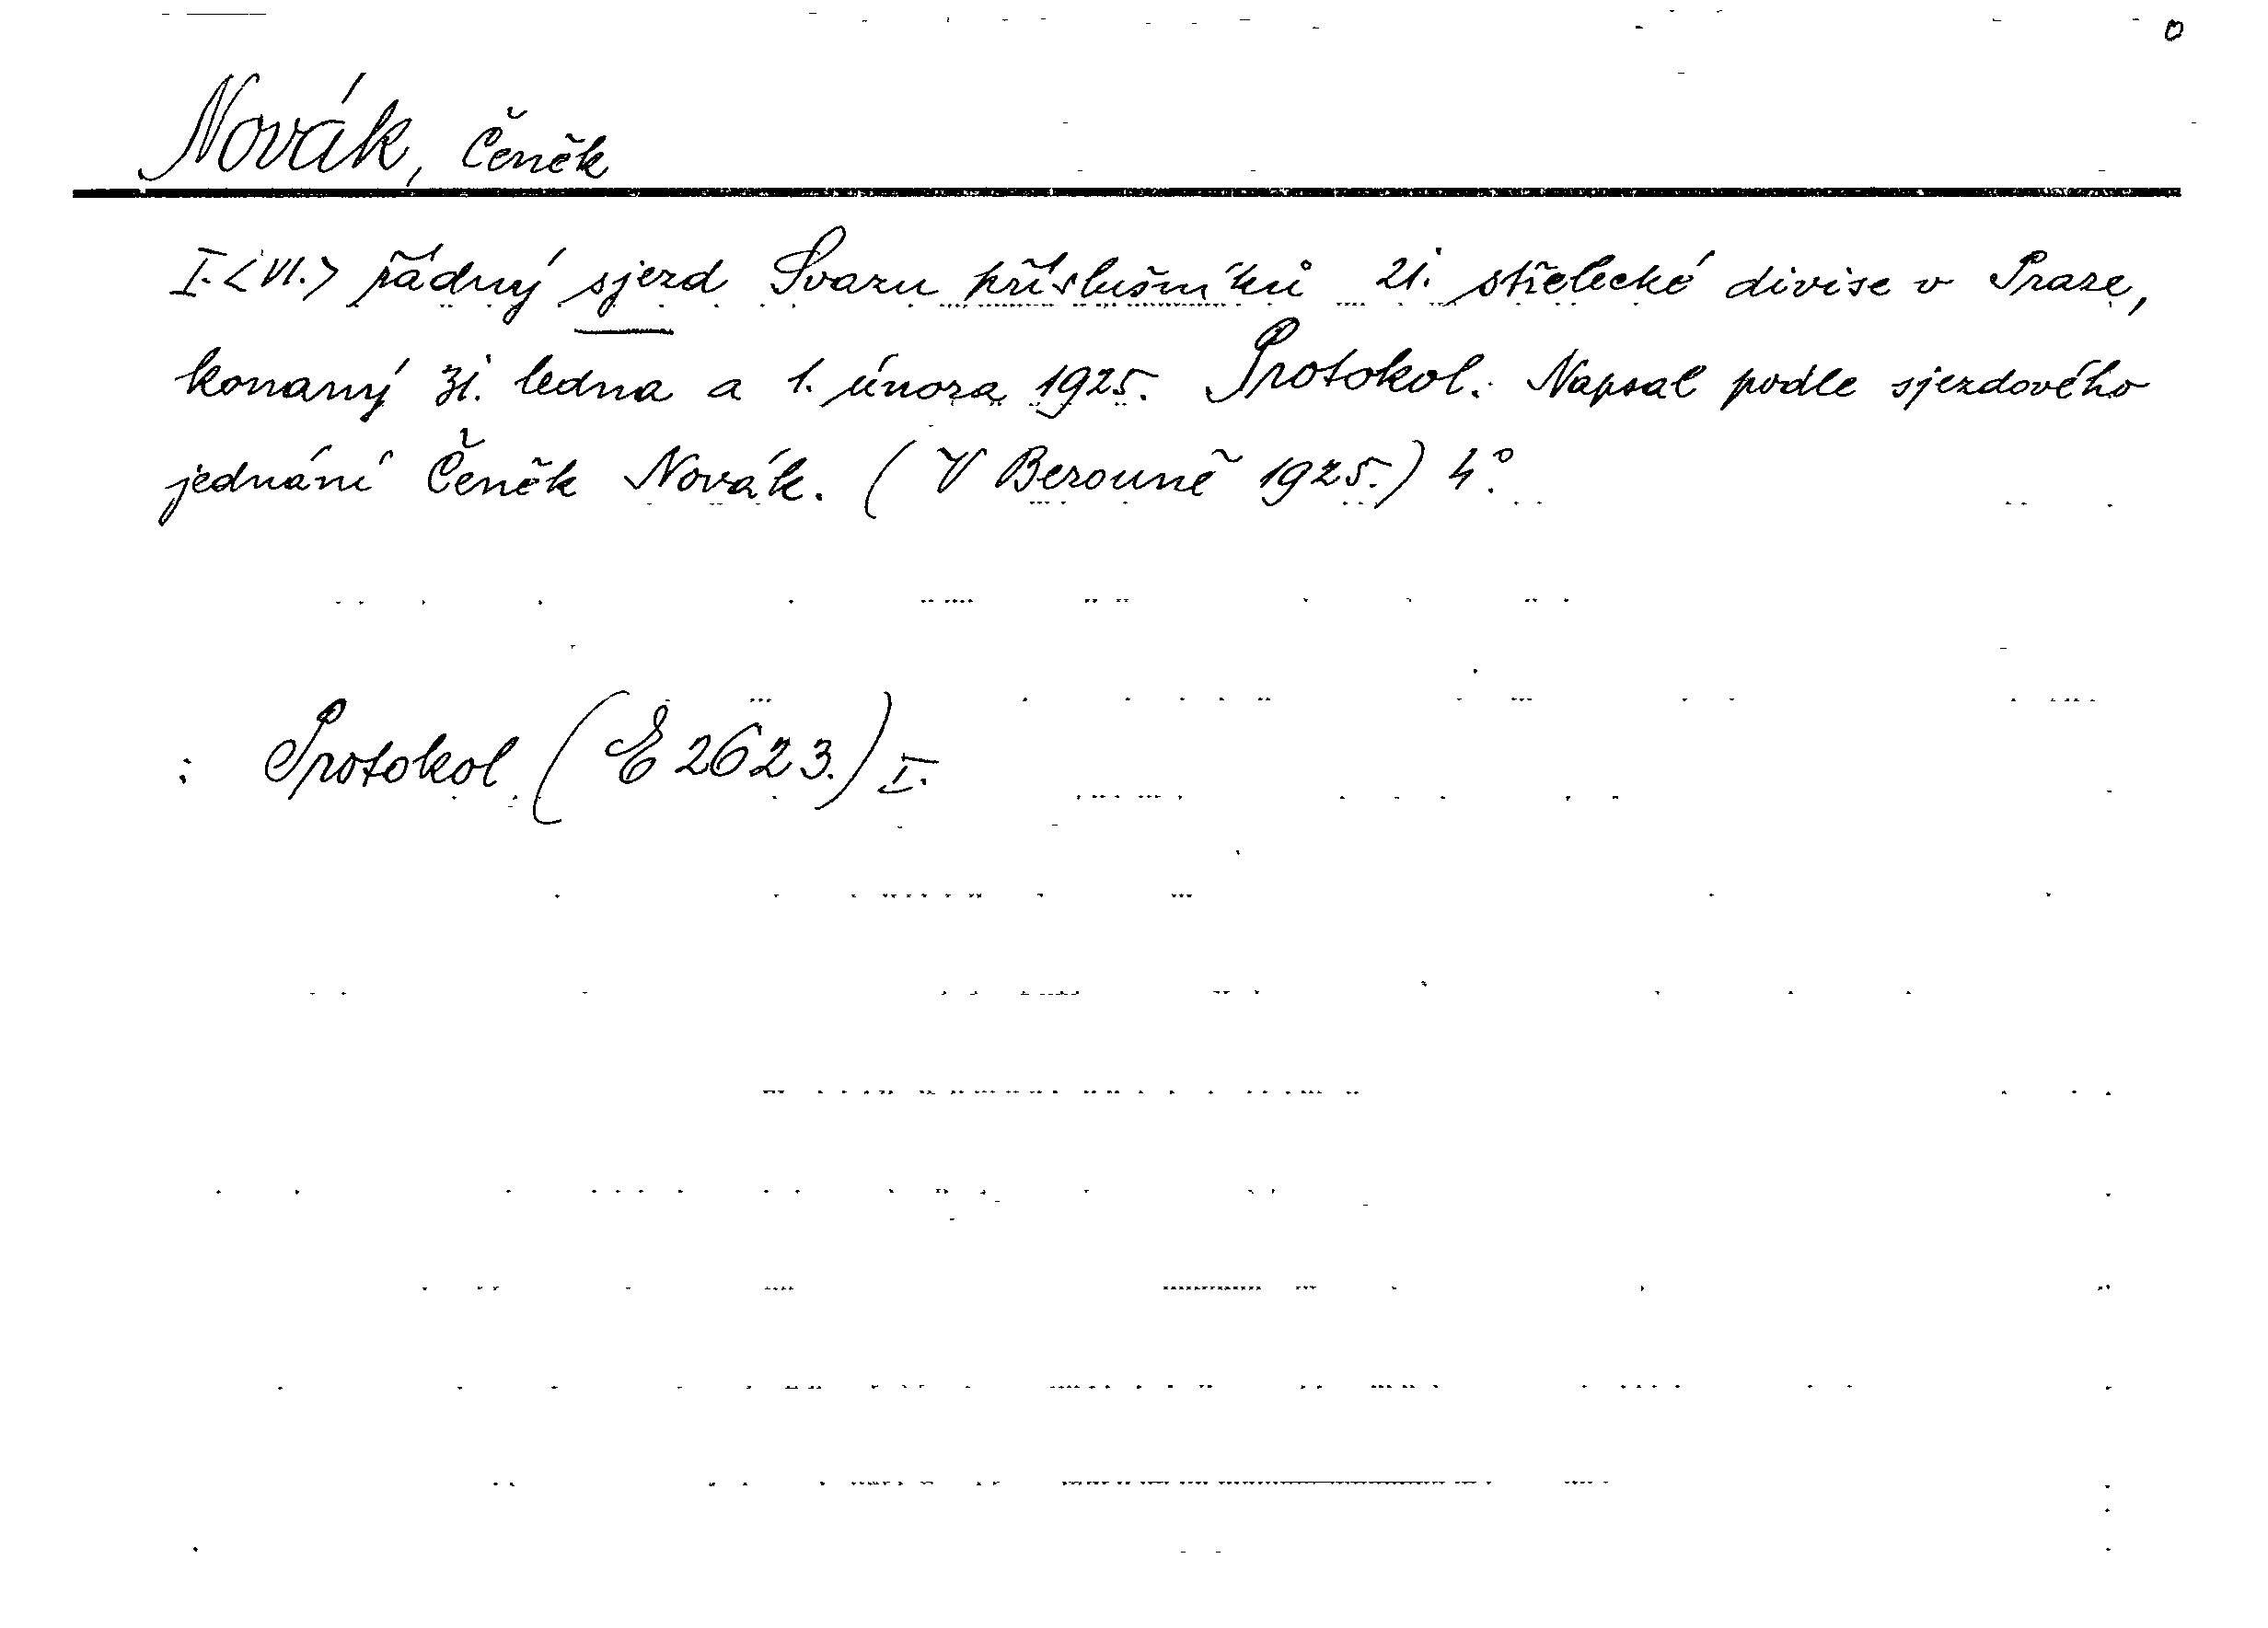 o
Novák, Čeněk
I. <VI.> řádný sjezd Svazu příslušníků 21. střelecké divise v Praze,
konaný 31. ledna a 1. února 1925. Protokol. Napsal podle sjezdového
jednání Čeněk Novák. (V Berouně 1925.) 4°.
: Protokol (E 2623.) I.